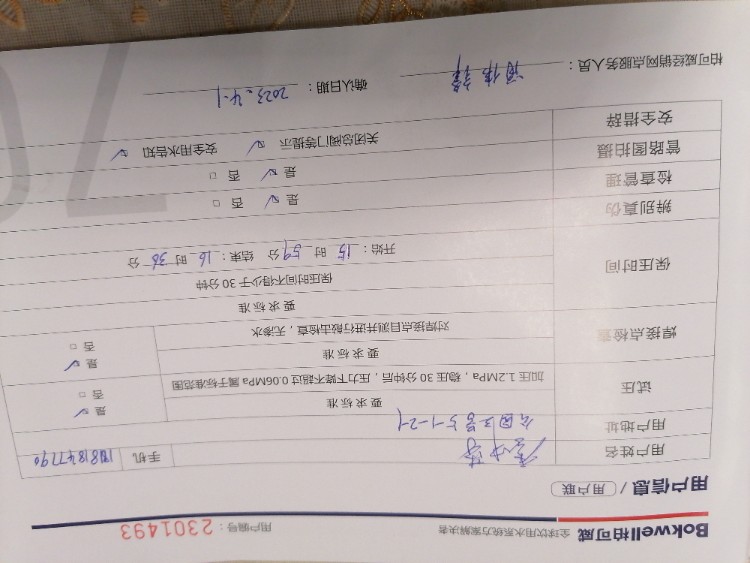 Bokwell柏可威 全球饮用水系统方案解决者 用户编号：2301493
用户信息 / 用户联
用户姓名 手机
用户地址 公园5-1-2-1
试压 要求标准 是 ✓
加压1.2MPa，稳压30分钟后，压力下降不超过0.06MPa属于标准范围 否 □
焊接点检查 要求标准 是 ✓
对焊接点目测并进行敲击检查，无渗水 否 □
保压时间 要求标准
保压时间不得少于30分钟
开始：15时59分 结束：16时36分
辨别真伪 是 ✓ 否 □
检查管理 是 ✓ 否 □
管路图拍摄 关闭总阀门等提示 ✓ 安全用水告知 ✓
安全措辞
柏可威经销网点服务人员： 确认日期：2023.4.1